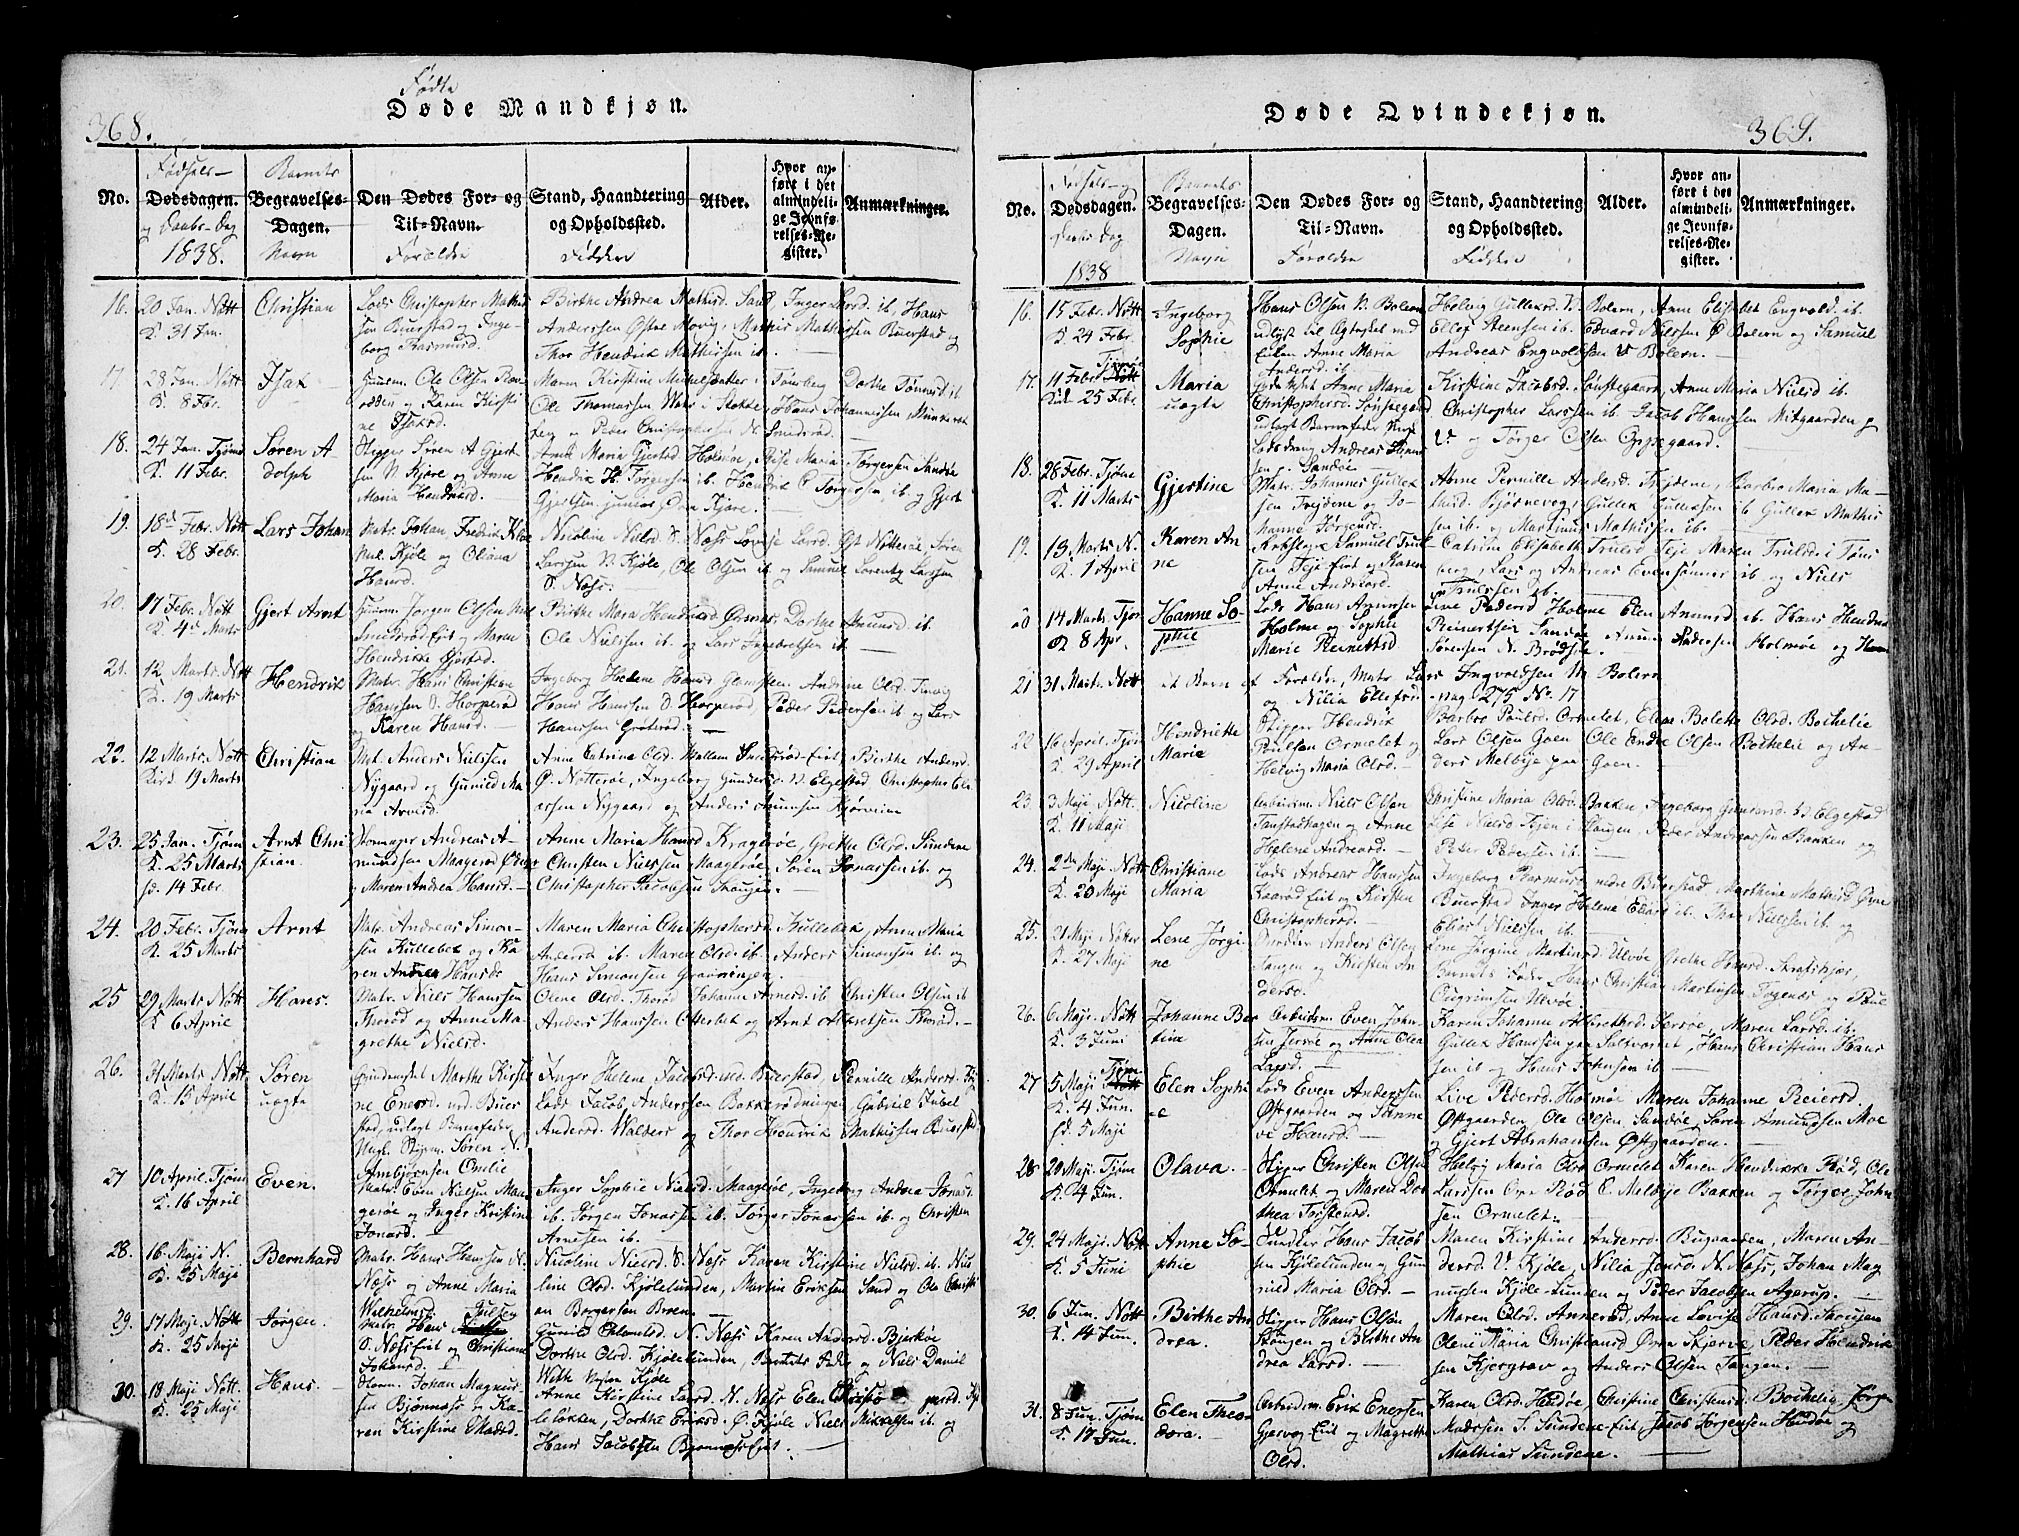 Fødte
Døde Mandkjøn.
368.
Fødsels-
Dødsdagen.
og Daabs-Dag
1838.
No.
Barnets
Begravelses-
Dagen.
Navn
Den Dødes For- og
Til-Navn.
Forældre
Stand, Haandtering
og Opholdssted.
Faddere
Alder.
Hvor an-
ført i det
almindeli-
ge Jevnfø-
relses-Re-
gister.
Anmærkninger.
16. 20 Jan. Nøtt
K. 31 Jan.
Christian
Lods Christopher Mathis
sen Buerstad og Inge-
borg Rasmusd.
Birthe Andrea Mathisd. Sand, Inger Larsd. ib. Hans
Anderssen Østre Movig, Mathis Mathissen Buerstad og
Thor Hendrik Mathissen ib.
17 28 Jan. Nøtt
K. 8 Febr.
Isak
Huusm. Ole Olsen
og Karen Kirsti
ne Isaksd.
Maren Kirstine Michelsdatter i Tønsberg Dorthe Tønnesd. ib
Ole Thomassen i Stokke, Hans Johannissen
og Peder Christophersen N. Smidsrød.
18. 24 Jan. Tjømø
K. 11 Febr.
Søren A
dolph
Skipper Søren A Gjert-
sen N. Kjøre og Anne
Maria Hendrisd.
Anne Maria Gjertsd Holmøe, Else Maria Torgersen Sandøe
Hendrik H. Torgersen ib. Hendrik C Torgersen ib. og Gjert
Gjertsen junior Dom Kjøre.
19. 18d Febr. Nøtt
K. 28 Febr.
Lars Johan
Matr. Johan Fredrik
Kjøle og Oliana
Hansd.
Nicoline Nielsd. S. Næss Lovise Larsd. Nøtterøe, Søren
Larssen V. Kjøle, Ole Olsen ib og Samuel Lorentz Larssen
S. Næss.
20. 17 Febr. Nøtt
K. 4de Marts
Gjert Arnt
Huusm. Jørgen Olsen
Smidsrød Eiet og Maren
Hendrikke Gjertsd.
Birthe Maria Hendriksd Ørsnes, Dorthe Amunsd. ib.
Ole Nielssen ib. og Lars Ingebretsen ib
21. 12 Marts Nøtt
K. 19 Marts
Hendrik
Matr. Hans Christian
Hanssen S. Horperød
og Karen Hansd.
Ingeborg Helene Hansd Andrine Olsd.
Hans Hanssen S. Horperød, Peder Pedersen ib og Lars
Hanssen Grøterød.
22. 12 Marts Nøtt
Kirk 19 Marts
Christian
Mt. Anders Nielssen
Nygaard og Gunild Ma
ria Arntsd.
Anne Catrine Olsd. Mellem Smidsrød-Eiet, Birthe Andersd.
Ø. Nøtterøe, Ingeborg Gundersd. V. Elgestad, Christopher
Nygaard og Anders Amunsen
23. 25 Jan. Tjøm
K. 25 Marts
fd. 14 Febr.
Arnt Chri
stian
Andreas A-
mundsen Maagerød
og Maren Andrea Hansd.
Anne Maria Hansd Kragerøe, Grethe Olsd. Sundene
Christen Nielssen Maagerøe, Søren Jonassen ib. og
Christopher Jacobsen Skougen.
24. 20 Febr. Tjøm
K. 25 Marts
Arnt
Matr Andreas Simon-
sen Kullebek og Ka
ren Andrea Hansd.
Maren Maria Christophersd. Kullebek, Anne Maria
Andersd ib. Maren Olsd. ib. Anders Simonsen ib. og
Hans Simonsen Grønningen.
25 29 Marts Nøtt
K 6 April
Hans.
Matr. Niels Hanssen
Thorød og Anne Ma
grethe Nielsd.
Olene Olsd. Thorød Johanne Arnesd. ib Christen Olsen ib
Anders Hanssen Otterbek og Arnt Albretsen Thorød.
26. 31 Marts Nøtt
K. 15 April
Søren
uægte
Marthe Kirsti
ne Enersd. ned. Buer
stad, udlagt Barnefader
Søren N.
Ambjørnsen Omlie
Inger Helene Jacobsd. ned. Buerstad, Pernille Andersd.
Lods Jacob Anderssen Bakkerødningen, Gabriel Jubel
Andersd. Walders og Thor Hendrik Mathissen Buerstad
27 10 April Tjøm
K. 16 April
Even.
Matr. Even Nielsen Maa
gerøe og Inger Kirstine
Jonasd.
Inger Sophie Nielsd. Maagerøe, Ingeborg Andrea Jonasd.
ib. Jørgen Jonassen ib. Torger Jonassen ib. og Christen
Arnesen ib.
28. 16 Maji N.
K. 25 Maji
Bernhard
Matr. Hans Hanssen N.
Næss og Anne Maria
Wilhelmsd.
Nicoline Nielsd. S. Næss Karen Kirstine Nielsd. ib. Nico
line Olsd. Kjølelunden, Martin Eriksen Sand og Ole Christi
an Borgersen Broen.
29. 17 Maji. Nøtt
K. 25 Maji
Jørgen.
Matr. Hans
S. Næss Eiet og Christiane
Johansd.
Gunild N. Næss Karen Andersd. Bjerkøe
Dorthe Olsd. Kjølelunden, Barnets Fader og Niels Daniel
With Kjøle
30. 18 Maji Nøtt.
K. 25 Maji
Hans.
Huusm. Johan Magnus-
sen Bjønnæss og Ka-
ren Kirstine Madsd.
Anne Kirstine Larsd. N. Næss Elen
Dorthe Eriksd. Ø. Kjøle Niels Mikkelssen ib. og
Hans Jacobsen Bjønnæss Eiet.
Døde Qvindekjøn.
369.
No.
Fødsels- og
Dødsdagen.
Daabs-Dag
1838
Barnets
Begravelses-
Dagen.
Navn
Den Dødes For- og
Til-Navn.
Forældre
Stand, Haandtering
og Opholdssted.
Faddere
Alder.
Hvor an-
ført i det
almindeli-
ge Jevnfø-
relses-Re-
gister.
Anmærkninger.
16. 15 Febr. Nøtt
K. 24 Febr.
Ingeborg
Sophie
Hans Olsen V. Bolærn
udlyst til Ægteskab med
Enken Anne Maria
Andersd. ib
Helvig Gulliksd. V. Bolærn, Anne Elisabet Engvold. ib.
Ellef Steensen ib. Edvard Nilssen Ø Bolærn og Samuel
Andreas Engvoldssen V Bolærn.
17. 11 Febr Tjømøe
Kirk 25 Febr.
Maria
uægte
Anne Maria
Christophersd Sønstegaard
udlagt Barnefader
Lodsdreng Andreas Hans
sen Sandøe
Kirstine Jacobsd. Sønstegaard, Anne Maria Nielsd ib.
Christopher Larssen ib. Jacob Hanssen Mitgaarden
V. og Torger Olsen Oppegaard.
18. 28 Febr. Tjøme
K. 11 Marts
Gjertine
Matr. Johannes Gullik
sen Feiedene og Jo-
hanne Jørgensd.
Anne Pernille Andersd. Feiedene, Barbro Maria Ma-
thisd. Bjørnevog, Gullik Gulliksen ib Gullik Mathis
sen ib. og Martinus Mathissen ib.
19. 13 Marts N.
K. 1 April
Karen An-
ne
Samuel Truls-
sen Teje Eiet og Karen
Anne Andreasd.
Catrine Elisabeth Trulsd Teje Maren Trulsd. i Tøns
berg, Lars og Andreas Evensønner ib og Niels
Trulssen ib.
20 14 Marts Tjøm
K 8 Apr.
Hanne So-
phie
Lods Hans Amunsen
Holme og Sophie
Marie Reinertsd
Live Pedersd Holme Elen Amunsd ib. Hans Hendrik
Reinertsen Sandøe Anun Andersen Holmøe og
Sørensen N. Brødsø.
21 31 Marts. Nøtt
et Barn af Forældre Matr. Lars Ingvoldsen M Bolærn
og Nilia Ellefsd. pag 275 No. 17
22 16 April. Tjøm
K. 29 April
Hendriette
Maria
Skipper Hendrik
Poulsen Ormelet og
Helvig Maria Olsd.
Barbro Poulsd. Ormelet, Elene Bolette Olsd. Bøthelie
Lars Olsen Goen Ole Endre Olsen Bøthelie og An-
ders Melbye paa Goen.
23. 3 Maji Nøtt.
K. 11 Maji
Nicoline
Arbeidsm. Niels Olsen
og Anne
Helene Andreasd.
Christine Maria Olsd. Bakken, Ingeborg Gundersd V. Elgestad
Lise Nielsd Tejen i Slangen, Peder Andreassen Bakken og
Peter Pedersen ib.
24. 2den Maji Nøtt
K. 20 Maji
Christiane
Maria
Lods Andreas Hanssen
Kaarød Eiet og Kirsten
Christophersd.
Ingeborg Rasmusd. nedre Buerstad Marthine Mathisd. Øvre
Buerstad Inger Helene Eliasd ib. Thor Nielssen ib. og
Elias Nielssen ib.
25. 21 Maji Nøtter
K. 27 Maji
Lene Jørgi-
ne
Anders Olsen
Tangen og Kirsten An
dersd.
Lene Jørgine Martinsd. Ulvøe Grethe Hansd.
Barnets Fader Hans Christian Martinsen Togenæs og Poul
Ougrimsen Ulvøe.
26. 6 Maji. Nøtt
K. 3 Juni
Johanne Ber
tine
Arbeidsm. Even John-
sen Jersøe og Anne Olea
Larsd.
Karen Johanne Albrethsd. Jersøe, Maren Larsd. ib.
Gullik Hanssen paa Saltværket, Hans Christian Hans
sen ib og Hans Johnsen ib.
27 5 Maji Tjøm
K. 4 Jun.
fd. 5 Maji
Elen Sophi
e
Lods Even Anderssen
Østgaarden og Sønne
ve Hansd.
Live Pedersd. Holmøe Maren Johanne Reiersd.
Østgaarden, Ole Olsen Sandøe, Søren Amundsen Moe
og Gjert Abrahamsen Østgaarden.
28 20 Maji. Tjøm
K. 4 Jun.
Olava.
Skipper Christen Olsen
Ormelet og Maren Do
thea Torstensd.
Helvig Maria Olsd. Ormelet Karen Hendrikke Rød, Ole
Larssen Øvre Rød C. Melbye Bakken og Torger John
sen Ormelet.
29. 24 Maji. Nøtt
K. 5 Juni
Anne So-
phie
Tundler Hans Jacob
sen Kjølelunden og Gun
nild Maria Olsd.
Maren Kirstine Andersd. Bugaarden, Maren An-
dersd. V. Kjøle, Nilia Jensd. N. Næss, Johan Mag
nusen Kjøle-Lunden og Peder Jacobsen Agerup.
30. 6 Jun. Nøtt
K. 14 Jun.
Birthe An
drea
Skipper Hans Olsen
Skougen og Birthe An
drea Larsd.
Maren Olsd. Annerød, Anne Lovise Hansd. Skougen
Olene Maria Christiansd Øvre Skjerve, Peder Hendrik
sen Kjergrav og Anders Olsen Tangen.
31. 8 Jun. Tjøm
K. 17 Jun.
Elen Theo-
dora.
Arbeidsm. Erik Enersen
Gjervog Eiet og Magrethe
Olsd.
Karen Olsd. Hudøe, Christine Christensd. Bøthelie, Jørgen
Madssen S. Sundene Eiet, Jacob Jørgensen Hudøe og
Mathias Sundene.